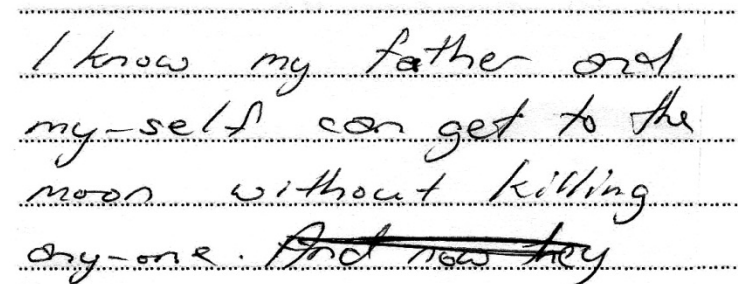 I know my father and
my-self can get to the
moon without killing
any-one. And now they